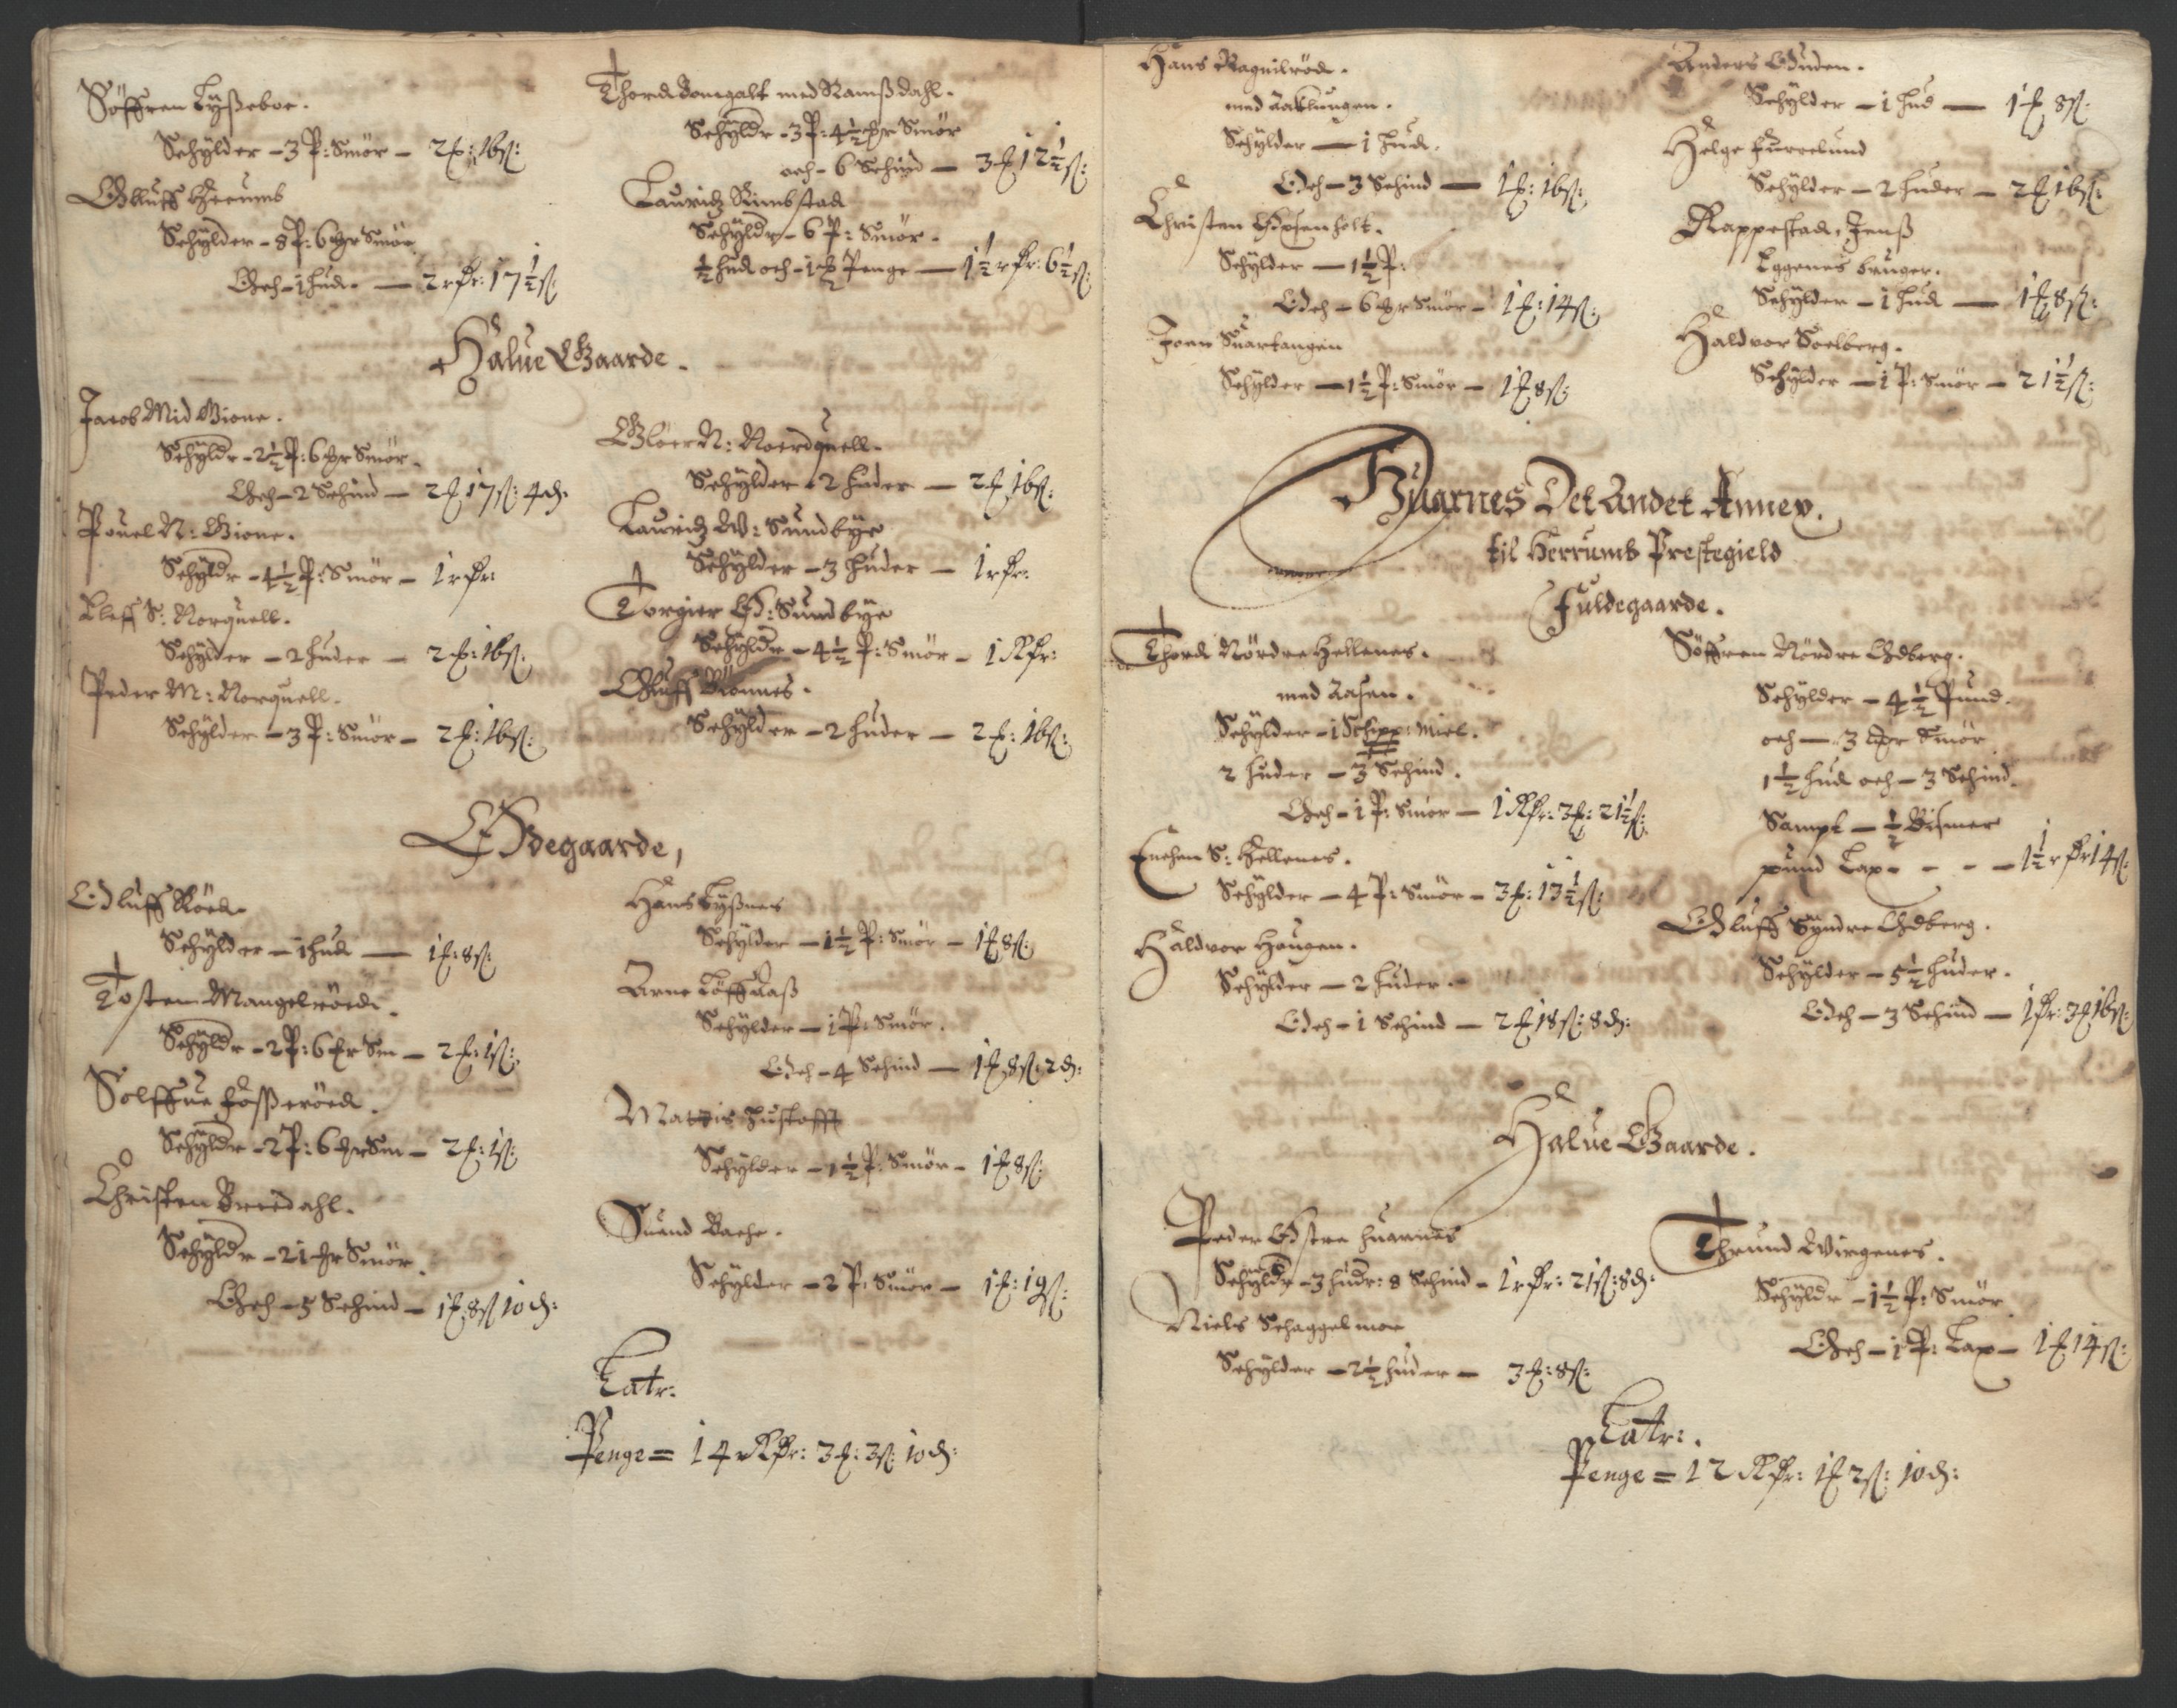 Söffren Tyßeboe.
Schylder – 3 P: Smör – 2 ℔: 16 ß:
Olluff Herumb
Schylder – 8 P: 6 Smör
Och – 1 hud – 2 r dr: 17½ ß
Thord Bomgalt med Ramßdahl.
Schyldr – 3 P: 4½ Smör
och – 6 Schind – 3 12½ ß:
Lauridz Rimbstad
Schyldr – 6 P: Smör –
½ hud och – 1 Penge – 1½ r dr: 6½ ß:
Halue Gaarde.
Jacob Mid Gione.
Schyldr – 2½ P: 6 Smör –
Och – 2 Schind – 2 17 ß: 4 d:
Pouel N: Gione.
Schyldr – 4½ P: Smör – 1 r dr:
Eleff S: Norquell.
Schylder – 2 huder – 2 : 16 ß:
Peder M: Norquell.
Schylder – 3 P: Smör – 2 : 16 ß:
Glöer N: Noerdquell.
Schylder – 2 huder – 2 16 ß:
Lauridz W: Sundbye
Schylder – 3 huder – 1 r dr:
Torgier Ø: Sundbye
Schyldr – 4½ P: Smör – 1 R dr:
Oluff Gionnes.
Schylder – 2 huder – 2 : 16 ß:
Ødegaarde,
Oluff Röed
Schylder – 1 hud – 1 : 8 ß:
Tosten Mangelröed.
Schyldr – 2 P: 6 Sm – 2 : 1 ß:
Solffue Foßeröed.
Schyldr – 2 P: 6 Sm – 2 : 1 ß:
Christen Bredahl.
Schyldr – 21 Smör
Och – 5 Schind – 1 8 ß 10 d:
Hans Tyßnes
Schylder – 1½ P: Smör – 1 8 ß:
Arne Löffaaß
Schylder – 1 P: Smör.
Och – 4 Schind – 1 8 ß: 2 d:
Mattis Hustofft
Schylder – 1½ P: Smör – 1 8 ß:
Suend Bache.
Schylder – 2 P: Smör – 1 : 19 ß:
Latr:
Penge = 14 R dr: 3 : 3 ß: 10 d:
Hans Ragnilröd.
med Aaklungen.
Schylder – 1 hud.
Och – 3 Schind – 1 : 16 ß:
Christen Hoxenholt.
Schylder – 1½ P:
Och – 6 Smör – 1 : 14 ß:
Joen Suartangen
Schylder – 1½ P: Smör – 1 8 ß:
Anders Eduden.
Schylder – 1 hud – 1 8 ß:
Helge Furrelund
Schylder – 2 huder – 2 16 ß:
Rappestad, Jenß
Eggenes bruger.
Schylder – 1 hud – 1 8 ß:
Haldvor Soelberg.
Schylder – 1 P: Smör – 21½ ß:
Huarnes Det Andet Annex.
til Herrumb Prestegield
Fuldegaarde.
Thord Nördre Hellenes.
med Aasen.
Schylder – 1 Schipp: Miel.
2 huder – 3 Schind.
Och – 1 P: Smör – 1 R dr: 3 : 21½ ß:
Enchen S: Hellenes.
Schylder – 4 P: Smör – 3 : 13½ ß:
Haldvor Haugen.
Schylder – 2 huder.
Och – 1 Schind – 2 18 ß: 8 d:
Söffren Nördre Odberg.
Schylder – 4½ Pund.
och – 3 Smör
1½ hud och – 3 Schind.
Sampt – ½ Bismer
pund Lax – – – 1½ r dr 14 ß:
Oluff Syndre Odberg.
Schylder – 5½ huder.
Och – 3 Schind – 1 dr: 3 16 ß:
Halue Gaarde.
Peder Østre Huarnes
Schyldr – 3 hudr: 8 Schind – 1 r dr: 21 ß: 8 d:
Niels Schaggelmoe
Schylder – 2½ huder – 3 : 8 ß:
Thrund Wirgenes.
Schyldr – 1½ P: Smör
Och – 1 P: Lax – 1 14 ß:
Latr:
Penge = 12 R dr: 1 2 ß: 10 d: